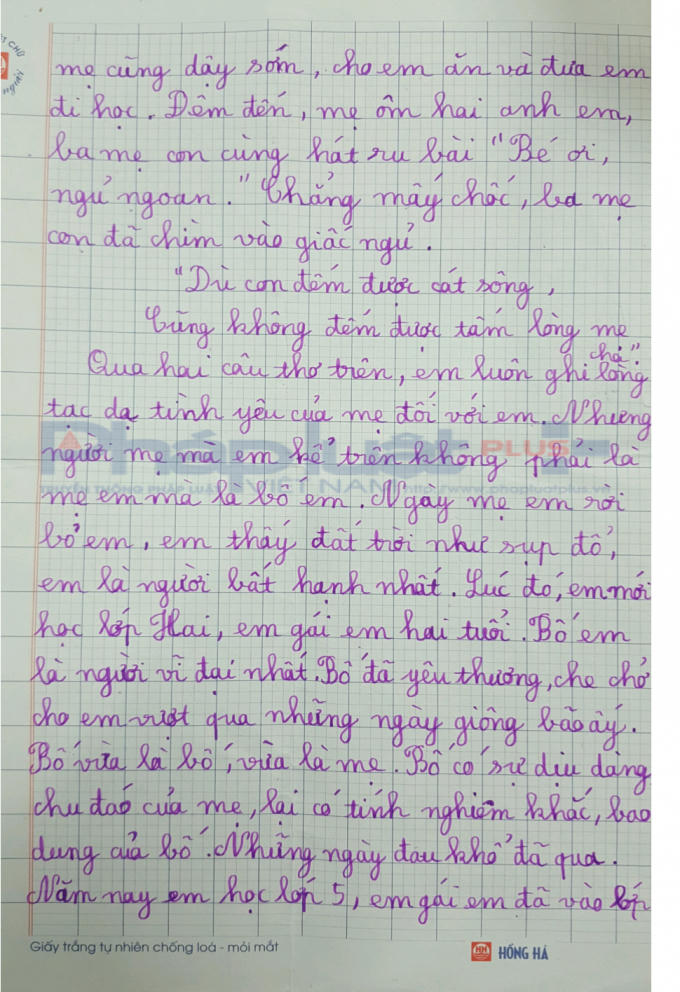 mẹ cũng dậy sớm, cho em ăn và đưa em
đi học. Đêm đến, mẹ ôm hai anh em,
ba mẹ con cùng hát ru bài "Bé ơi,
ngủ ngoan." Chẳng mấy chốc, ba mẹ
con đã chìm vào giấc ngủ.
"Dù con đếm được cát sông,
Cũng không đếm được tấm lòng mẹ
cha."
Qua hai câu thơ trên, em luôn ghi lòng
tạc dạ tình yêu của mẹ đối với em. Nhưng
người mẹ mà em kể trên không phải là
mẹ em mà là bố em. Ngày mẹ em rời
bỏ em, em thấy đất trời như sụp đổ,
em là người bất hạnh nhất. Lúc đó, em mới
học lớp Hai, em gái em hai tuổi. Bố em
là người vĩ đại nhất. Bố đã yêu thương, che chở
cho em vượt qua những ngày giông bão ấy.
Bố vừa là bố, vừa là mẹ. Bố có sự dịu dàng
chu đáo của mẹ, lại có tính nghiêm khắc, bao
dung của bố. Những ngày đau khổ đã qua.
Năm nay em học lớp 5, em gái em đã vào lớp
Giấy trắng tự nhiên chống loá - mỏi mắt
HỒNG HÀ
Pháp luật PLUS